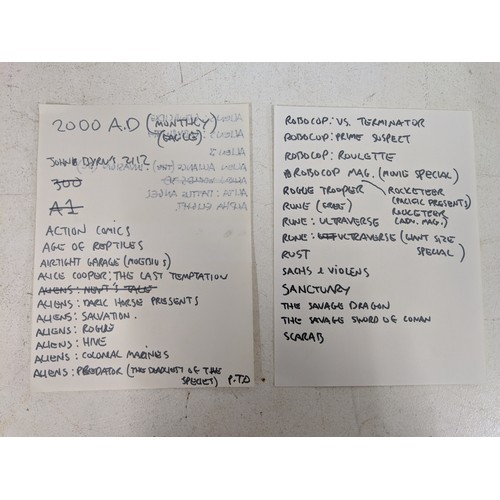 2000 A.D (MONTHLY)
(EAGLE)
JOHN BYRNE 2112
300
A1
ACTION COMICS
AGE OF REPTILES
AIRTIGHT GARAGE (MOEBIUS)
ALICE COOPER: THE LAST TEMPTATION
ALIENS: NEWT'S TALE
ALIENS: DARK HORSE PRESENTS
ALIENS: SALVATION.
ALIENS: ROGUE
ALIENS: HIVE
ALIENS: COLONIAL MARINES
ALIENS: PREDATOR (THE DEADLIEST OF THE
SPECIES) P.T.O
ROBOCOP: VS. TERMINATOR
ROBOCOP: PRIME SUSPECT
ROBOCOP: ROULETTE
ROBOCOP MAG. (MOVIE SPECIAL)
ROGUE TROOPER
ROCKETEER
(PACIFIC PRESENTS)
RUNE (FREE)
ROCKETEER
(ADV. MAG.)
RUNE: ULTRAVERSE
RUNE: ULTRAVERSE (GIANT SIZE
SPECIAL)
RUST
SACHS & VIOLENS
SANCTUARY
THE SAVAGE DRAGON
THE SAVAGE SWORD OF CONAN
SCARAB